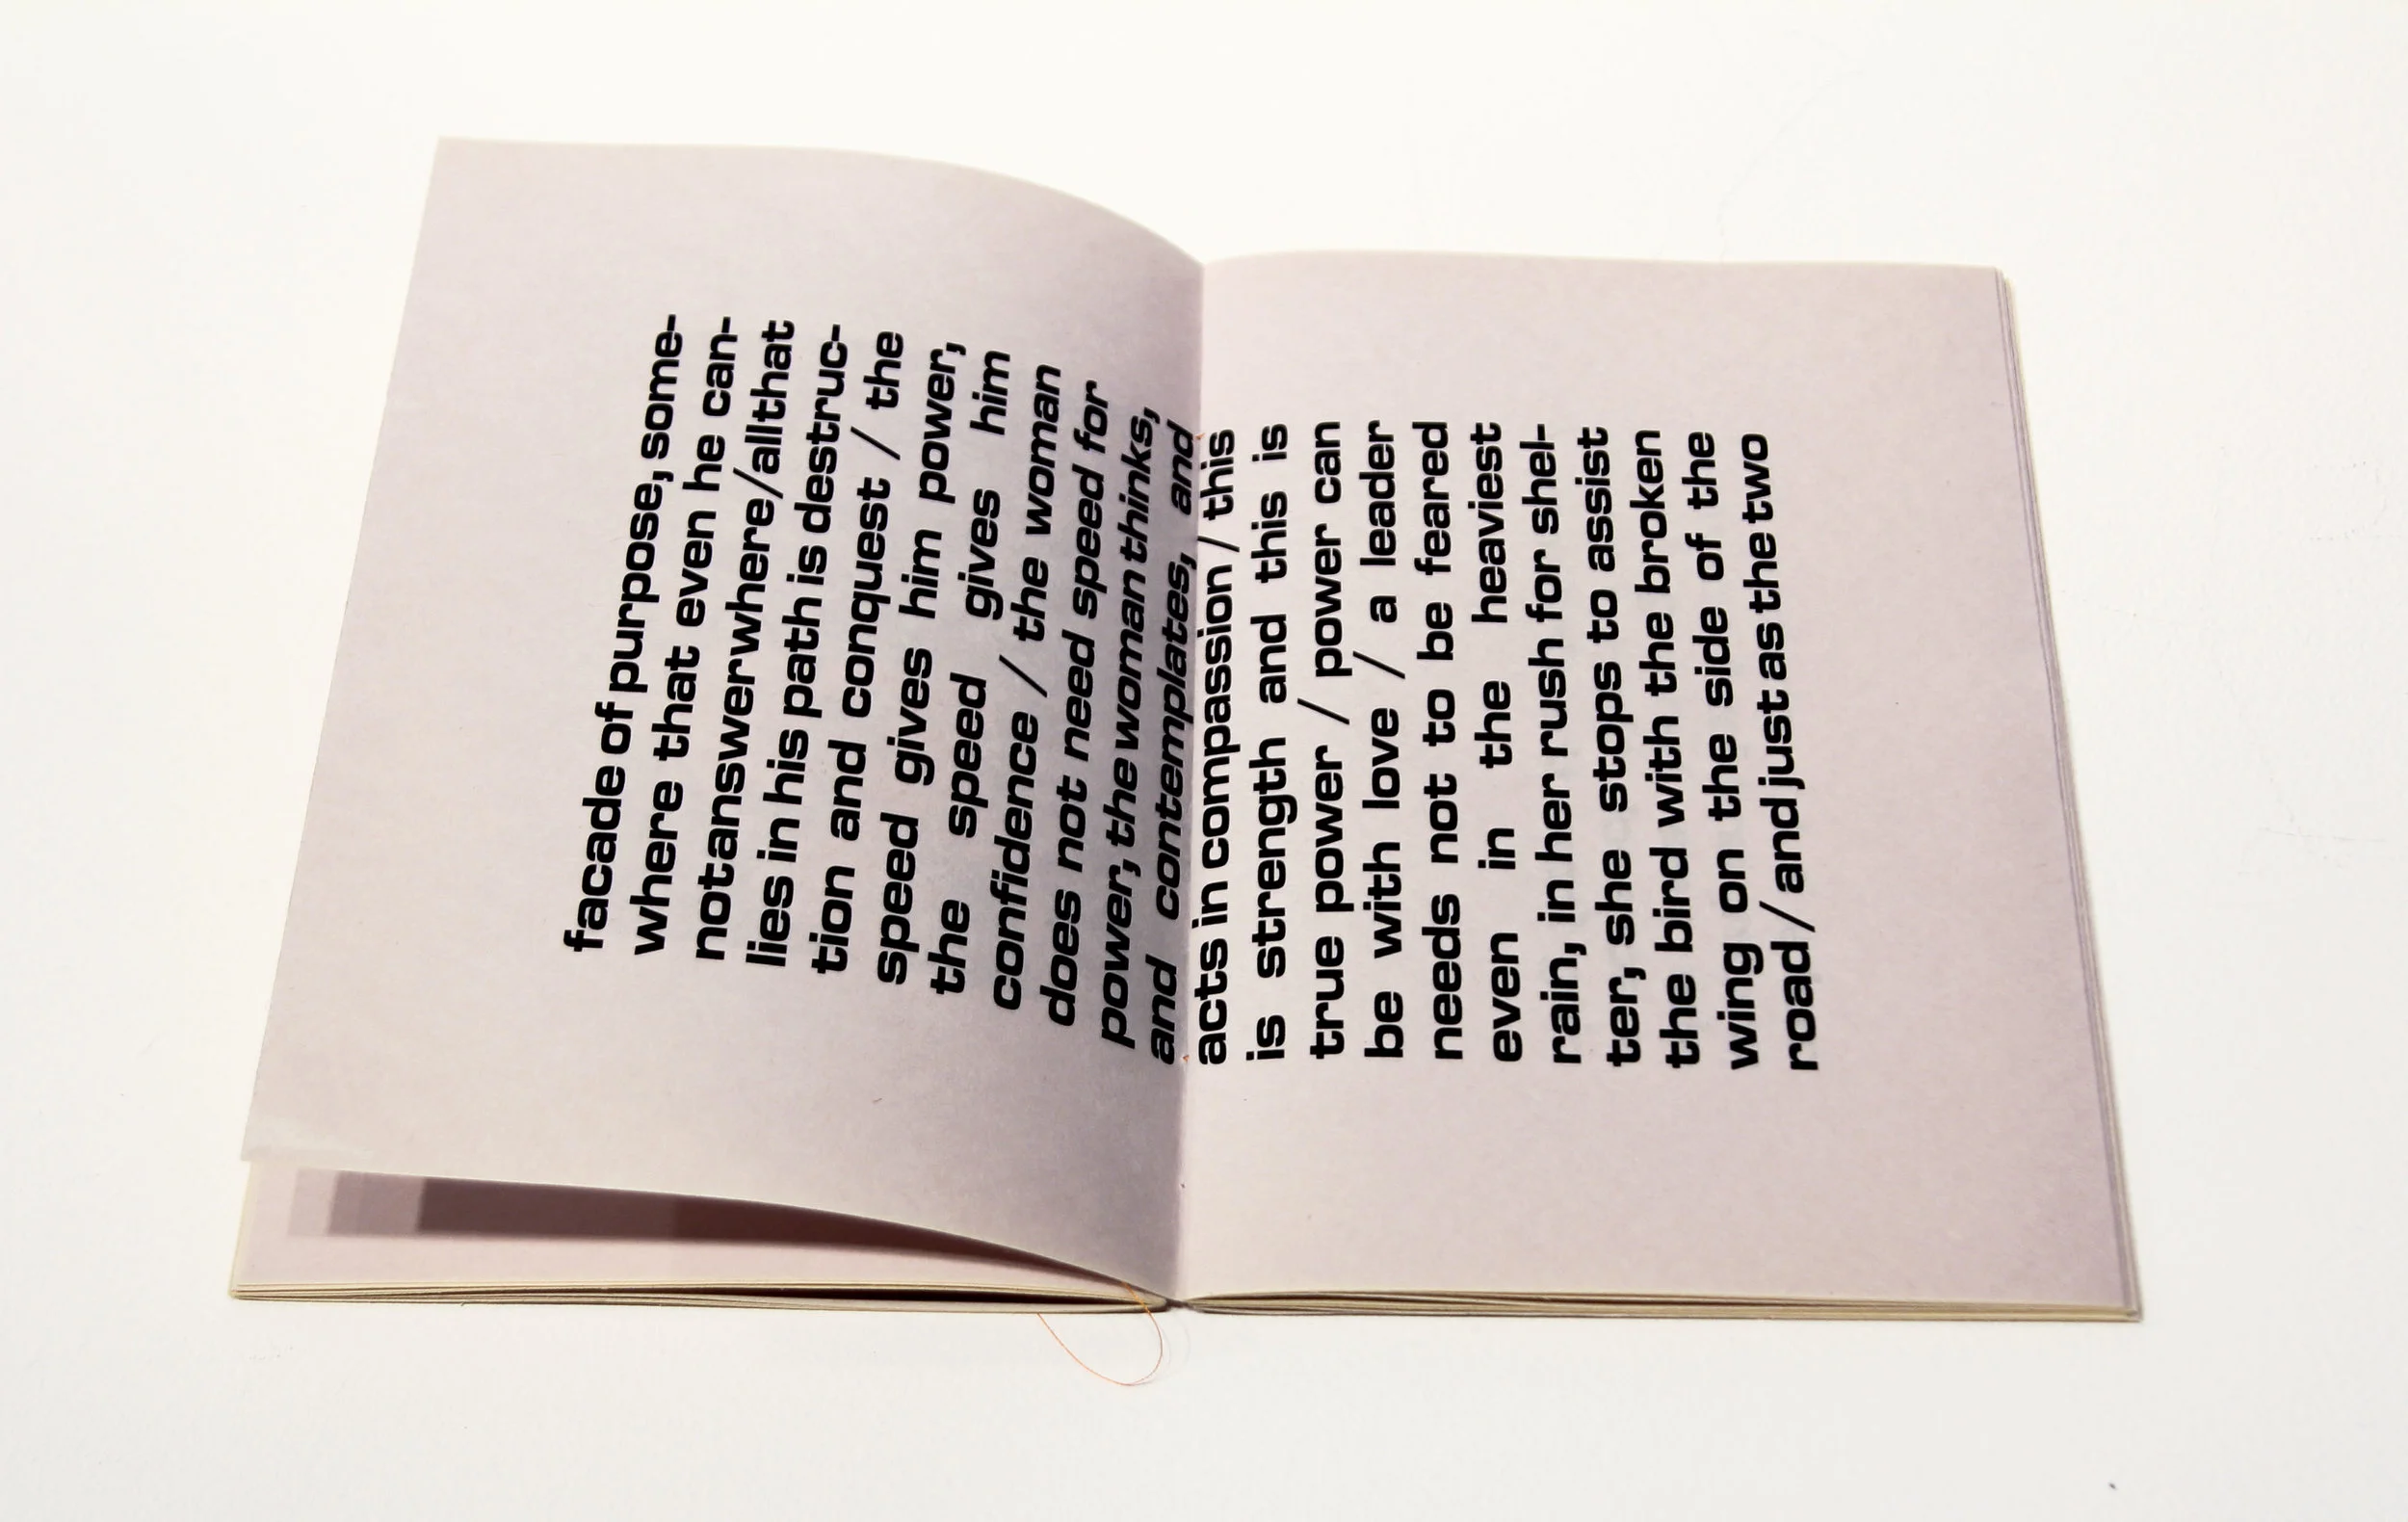 facade of purpose, some-
where that even he can-
notanswerwhere/allthat
lies in his path is destruc-
tion and conquest / the
speed gives him power,
the speed gives him
confidence / the woman
does not need speed for
power, the woman thinks,
and contemplates, and
acts in compassion / this
is strength and this is
true power / power can
be with love / a leader
needs not to be feared
even in the heaviest
rain, in her rush for shel-
ter, she stops to assist
the bird with the broken
wing on the side of the
road / andjust as the two